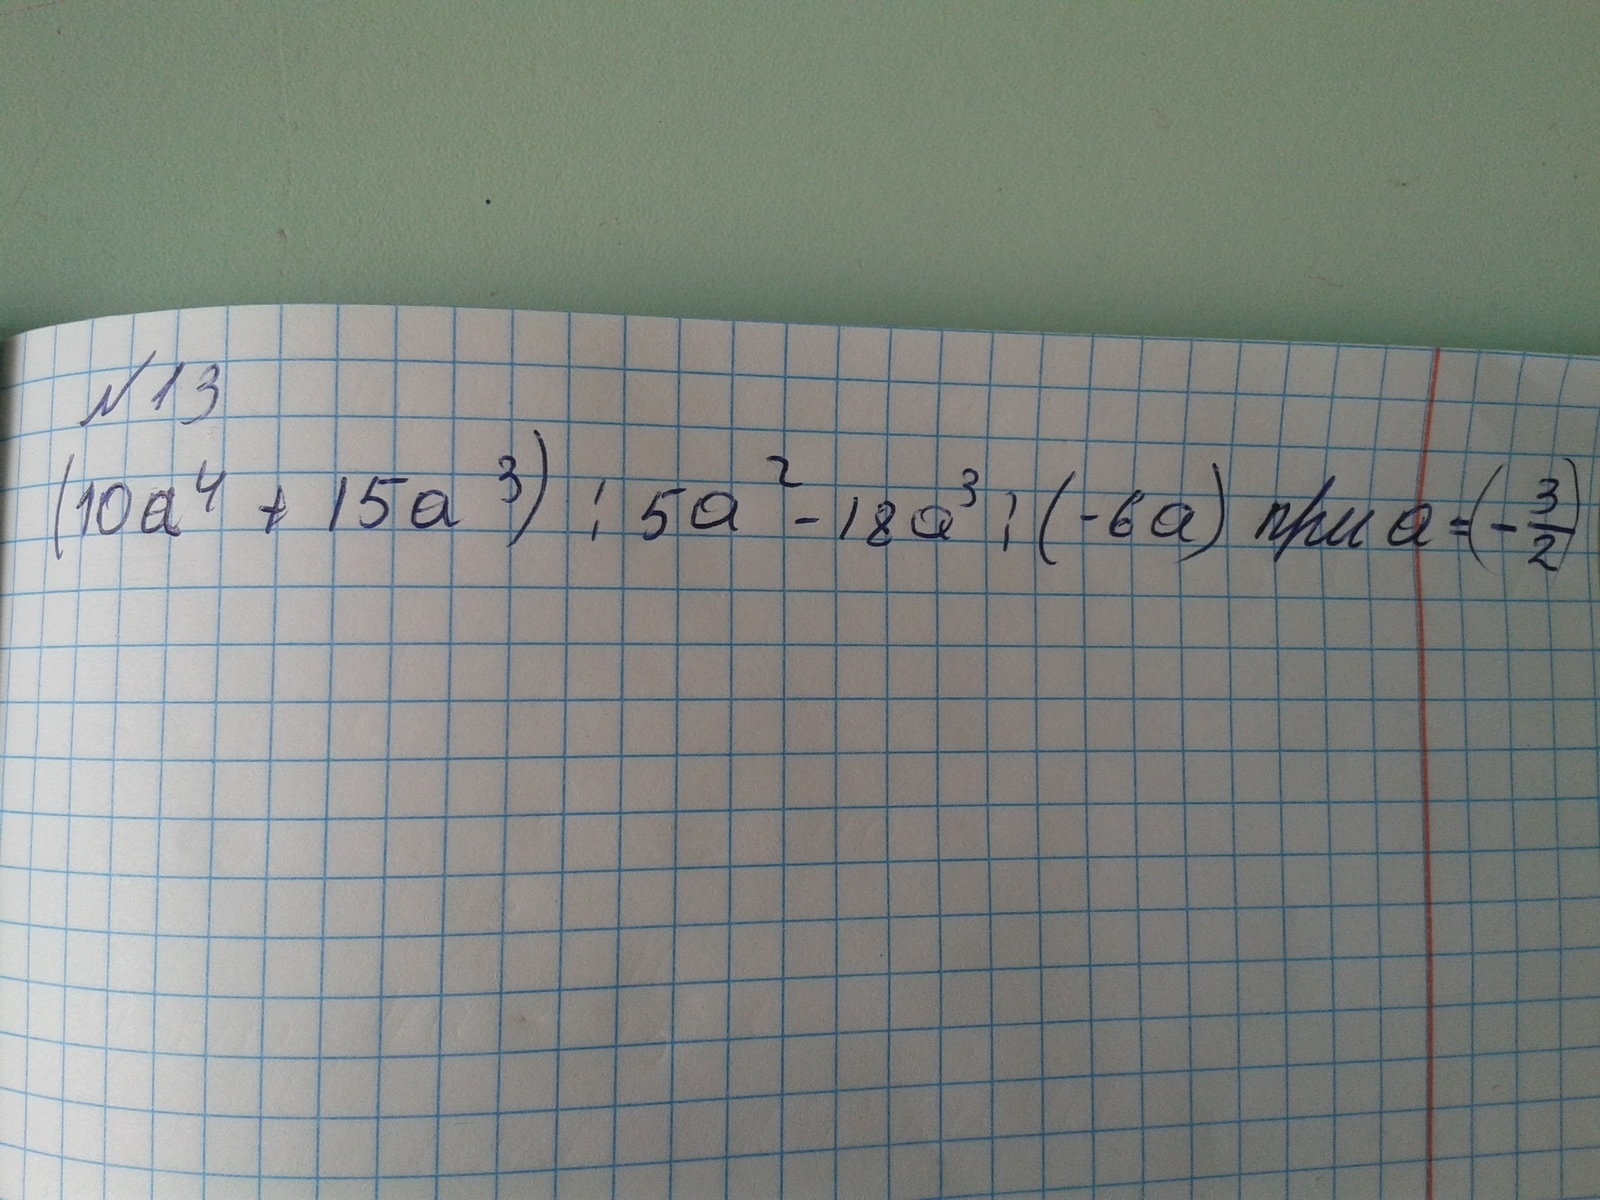 №13
(10a⁴ + 15a³) : 5a² - 18a³ : (-6a) при a = (-3/2)